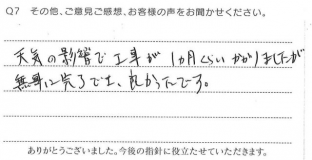 Q7 その他、ご意見ご感想、お客様の声をお聞かせください。
天気の影響で工事が1カ月くらいかかりましたが
無事に完了でき、良かったです。
ありがとうございました。今後の指針に役立たせていただきます。